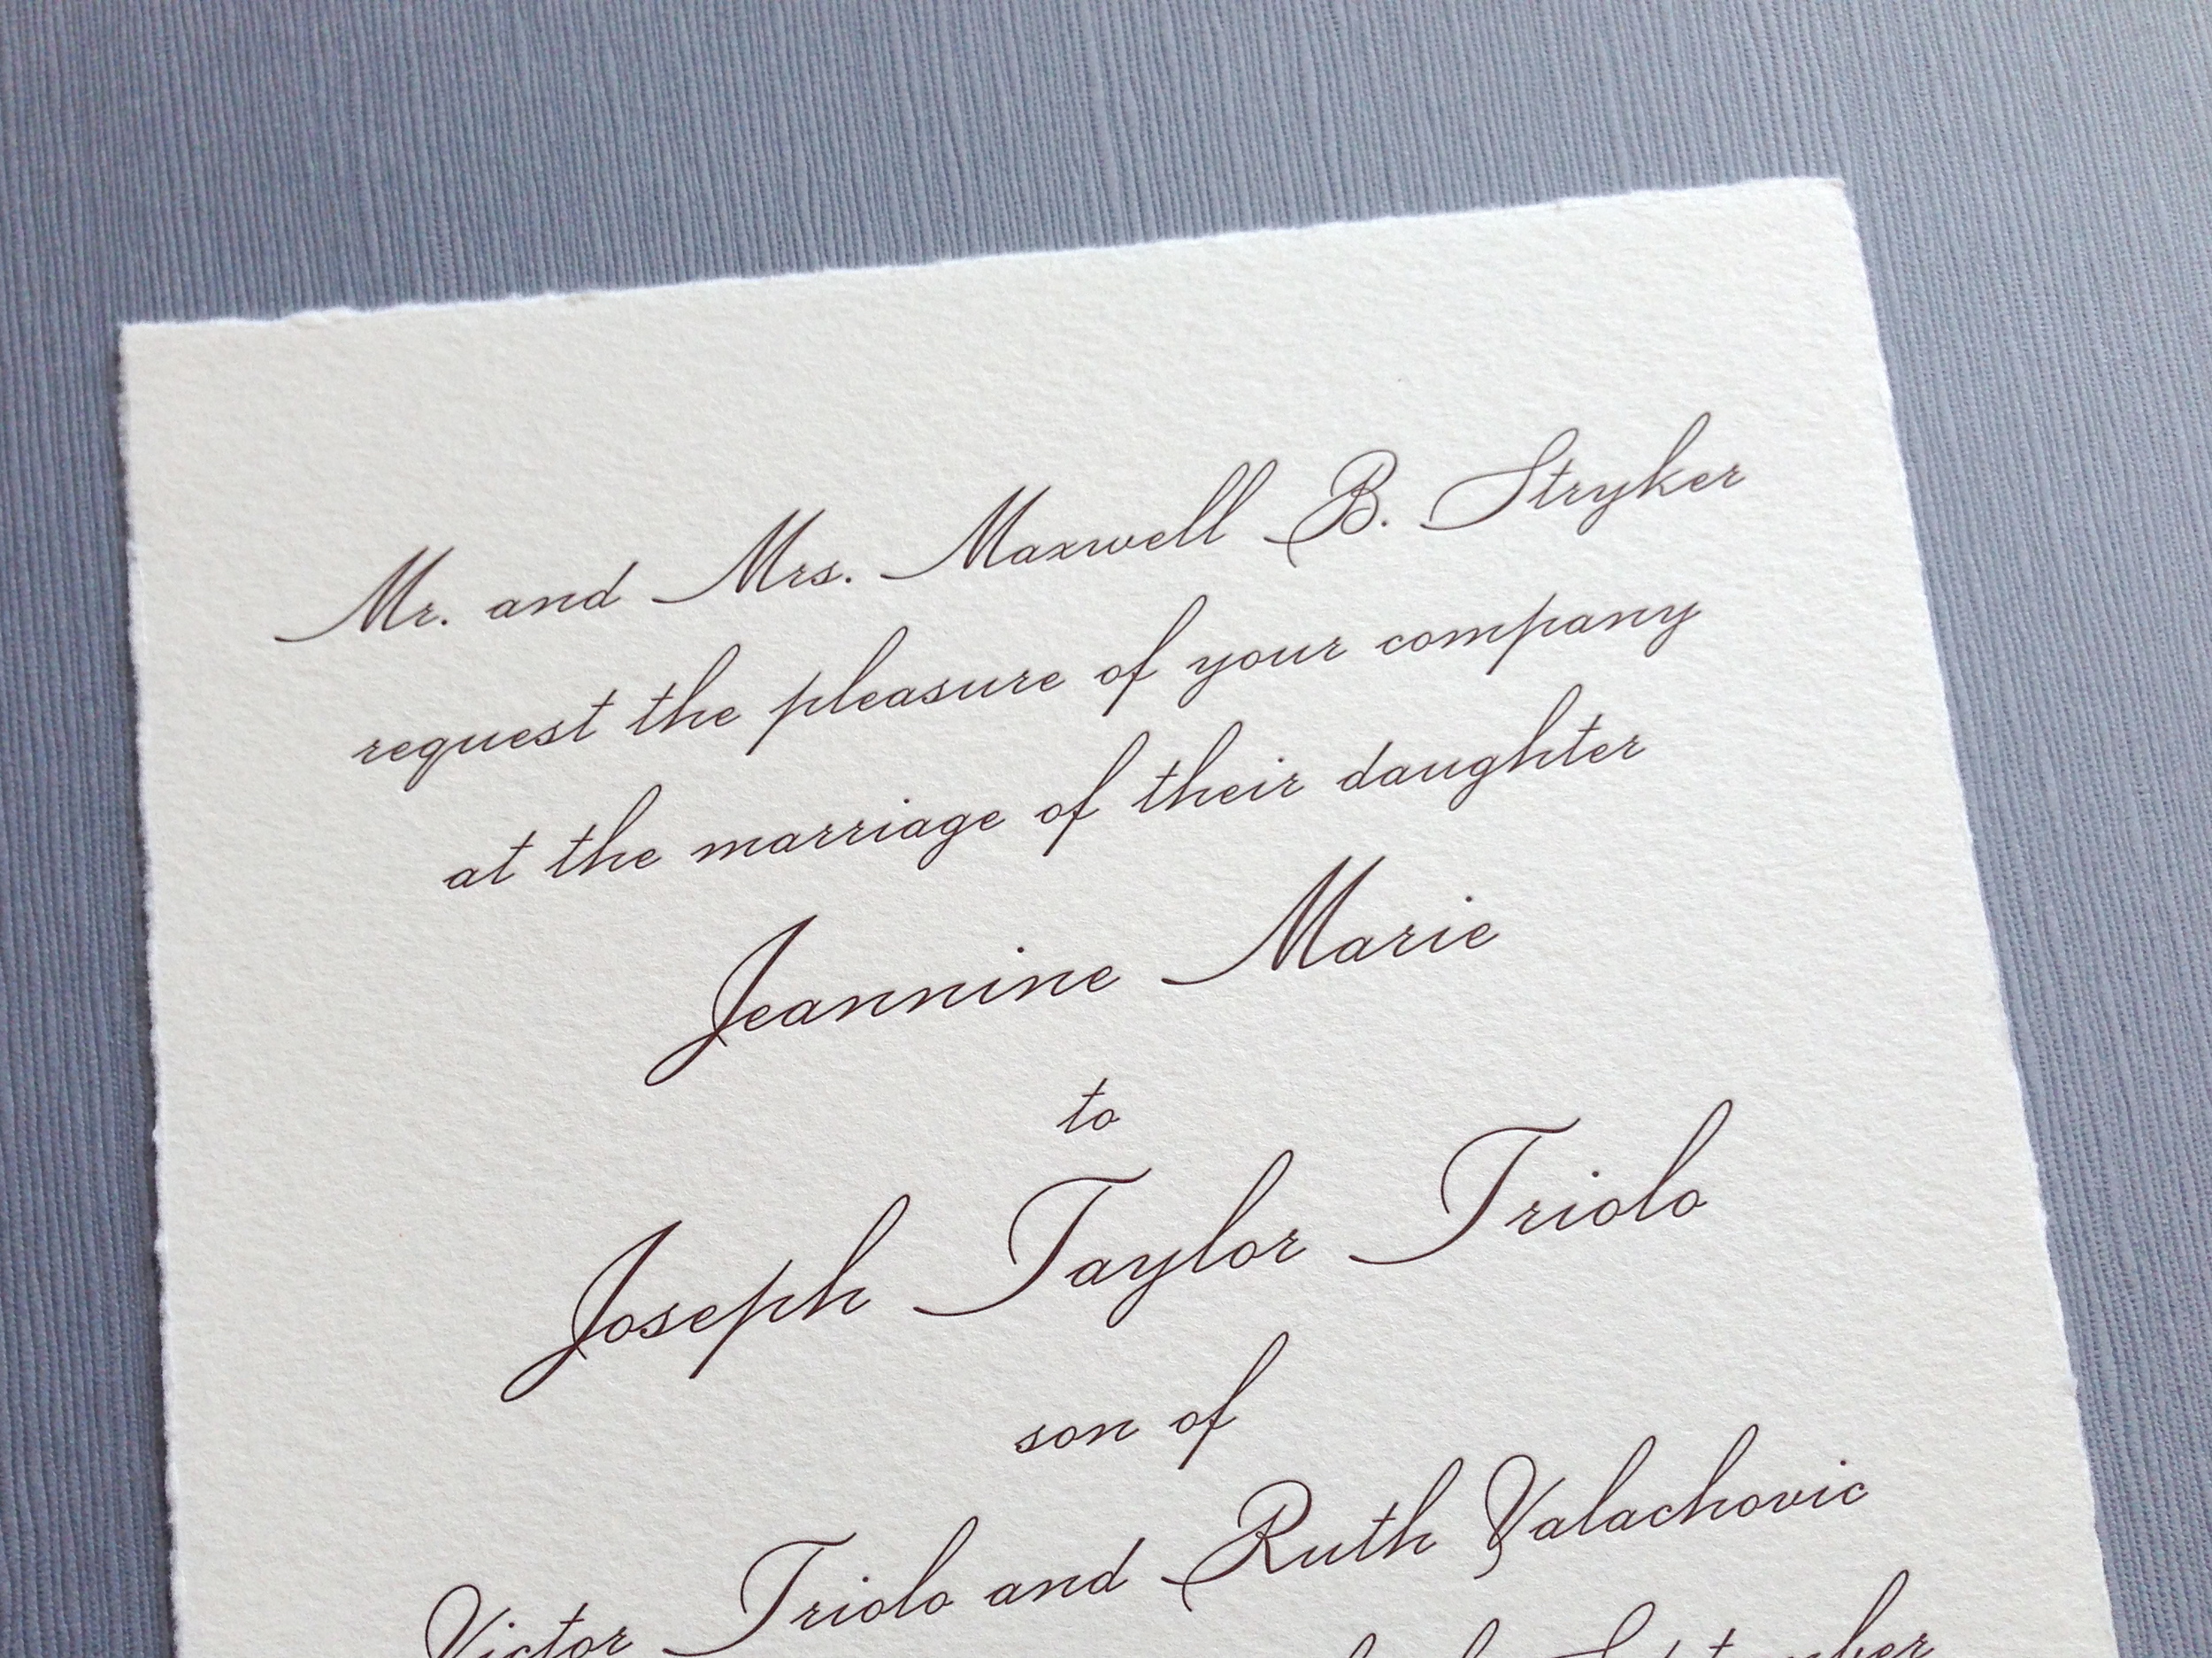 Mr. and Mrs. Maxwell B. Stryker
request the pleasure of your company
at the marriage of their daughter
Jeannine Marie
to
Joseph Taylor Triolo
son of
Victor Triolo and Ruth Valachovic
September